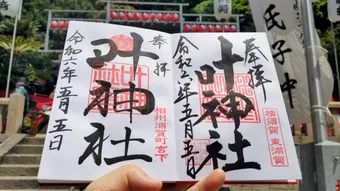 奉拝
叶神社
相州 浦賀町宮下
令和六年五月五日
奉拝
叶神社
相模 東浦賀
令和六年五月五日
氏子中